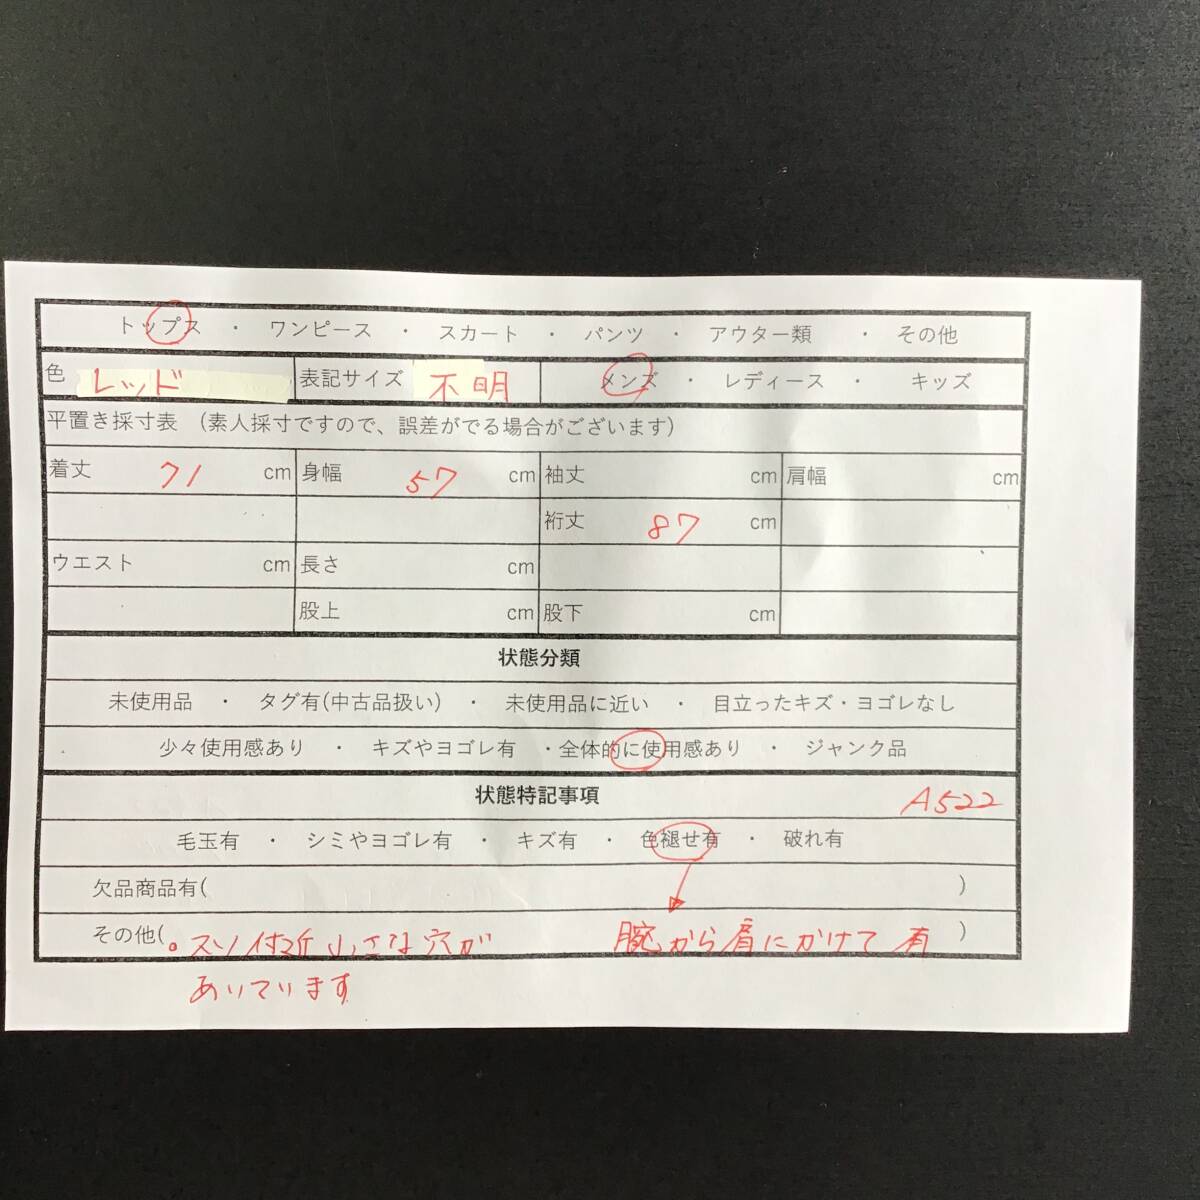 トップス ・ ワンピース ・ スカート ・ パンツ ・ アウター類 ・ その他
色 レッド 表記サイズ 不明 メンズ ・ レディース ・ キッズ
平置き採寸表 (素人採寸ですので、誤差がでる場合がございます)
着丈 71 cm 身幅 57 cm 袖丈 cm 肩幅 cm
裄丈 87 cm
ウエスト cm 長さ cm
股上 cm 股下 cm
状態分類
未使用品 ・ タグ有(中古品扱い) ・ 未使用品に近い ・ 目立ったキズ・ヨゴレなし
少々使用感あり ・ キズやヨゴレ有 ・全体的に使用感あり ・ ジャンク品
状態特記事項 A522
毛玉有 ・ シミやヨゴレ有 ・ キズ有 ・ 色褪せ有 ・ 破れ有
欠品商品有( )
その他( 。スソ付近小さな穴が 腕から肩にかけて有 )
あいています